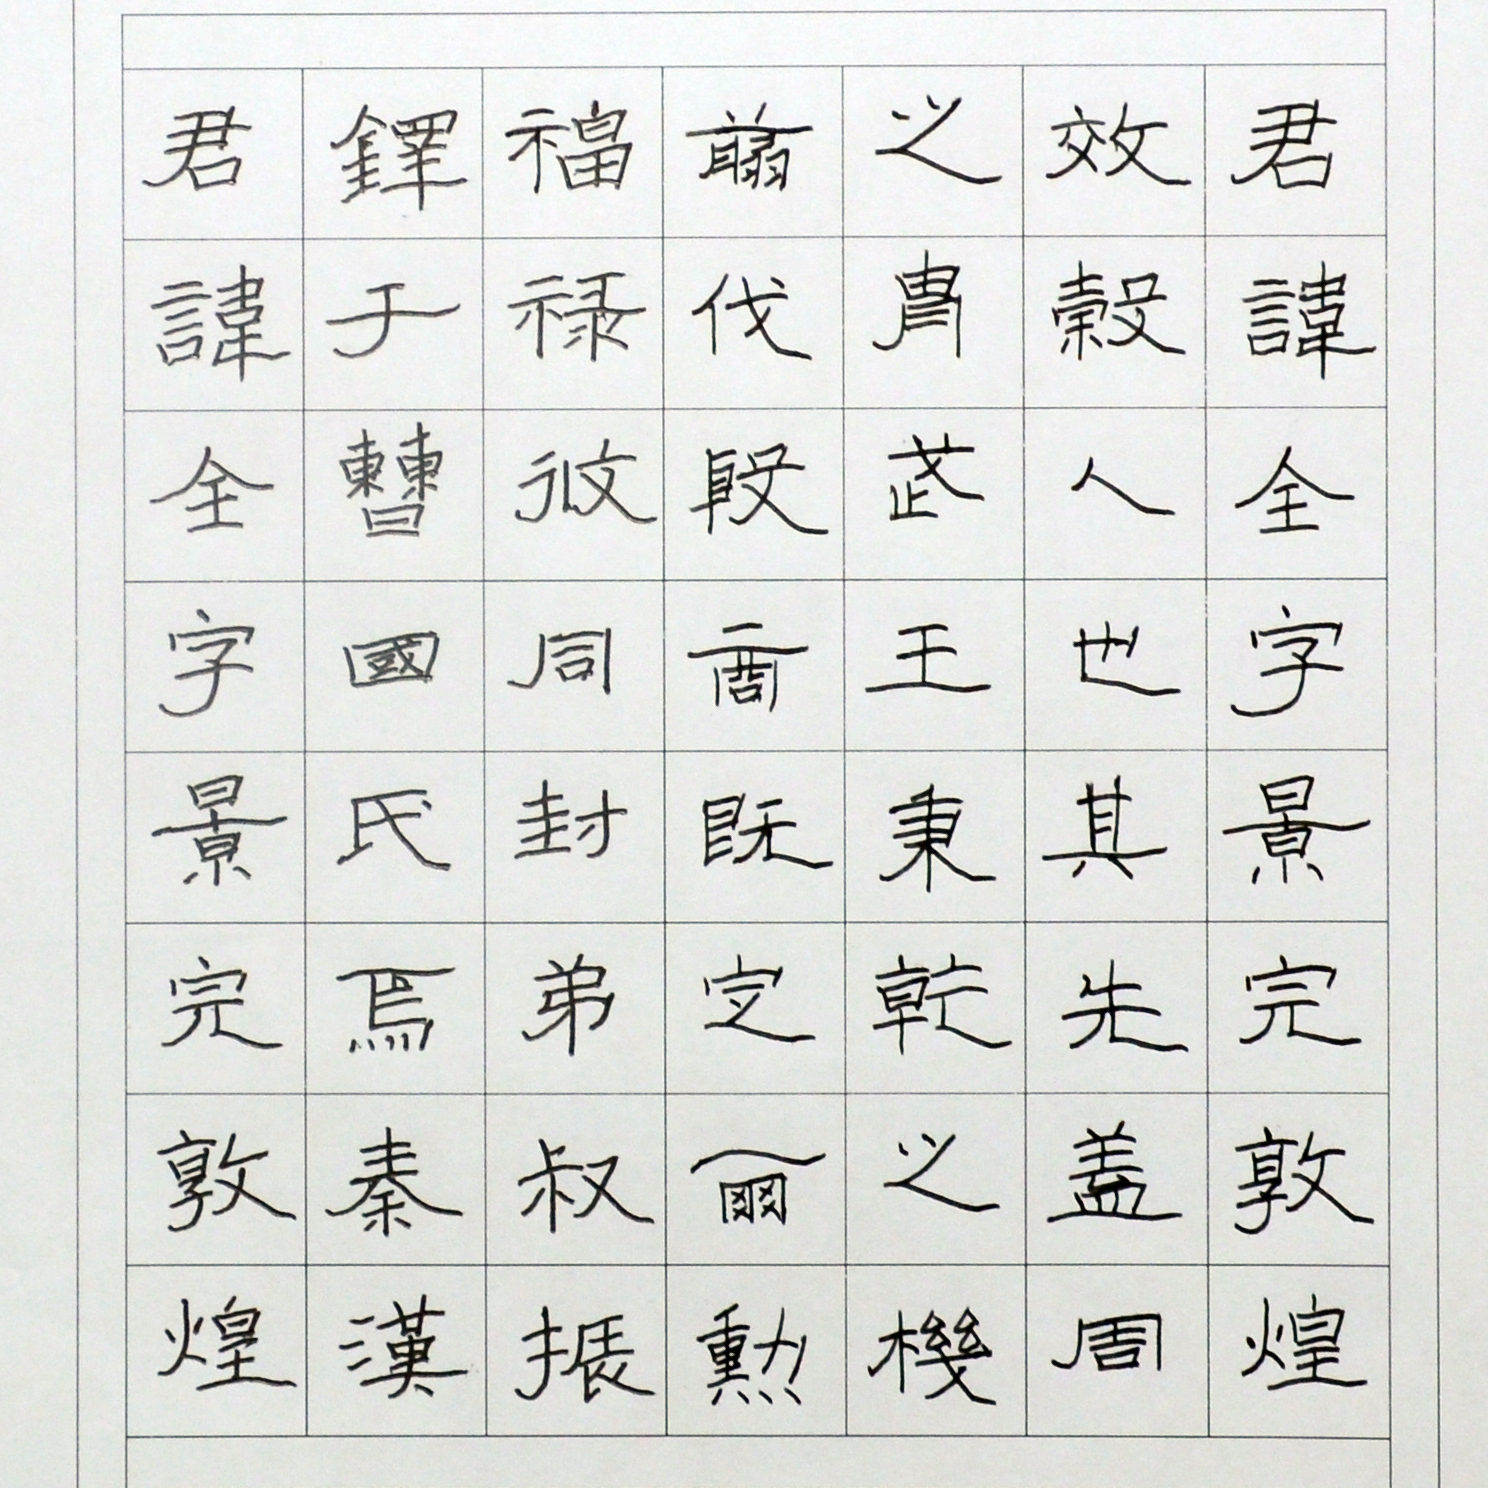 君諱全字景完敦煌
效穀人也其先蓋周
之胄武王秉乾之機
翦伐殷商既定爾勳
福祿攸同封弟叔振
鐸于曹國氏焉秦漢
君諱全字景完敦煌